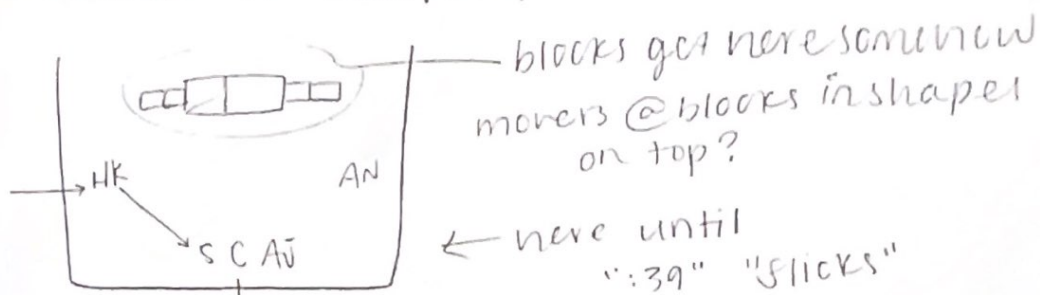 blocks get here somehow
movers @ blocks in shapes
on top?
HK
AN
S C AJ
← here until
":39" "flicks"